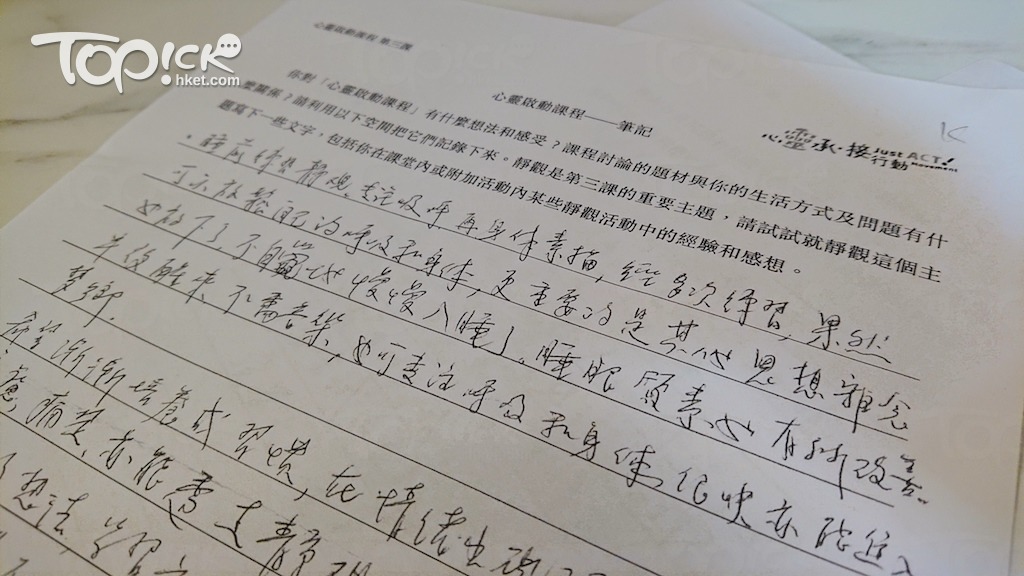 TOPick
hket.com
心靈啟動課程 第三課
心靈啟動課程——筆記
心靈承·接
Just ACT!
行動
你對「心靈啟動課程」有什麼想法和感受？課程討論的題材與你的生活方式及問題有什
麼關係？請利用以下空間把它們記錄下來。靜觀是第三課的重要主題，請試試就靜觀這個主
題寫下一些文字，包括你在課堂內或附加活動內某些靜觀活動中的經驗和感想。
靜觀，專注呼吸再身体素描，經多次練習，果然
可示放鬆自己的呼吸和身体，更重要的是其他思想雜念
也放下了，不自覺地慢慢入睡了。睡眠質素也有所改善。
半夜醒來不需音樂，也可專注呼吸和身体，很快亦能進入
夢鄉。
漸漸培養成習慣，在情緒
痛楚，亦能靈
想法，學習